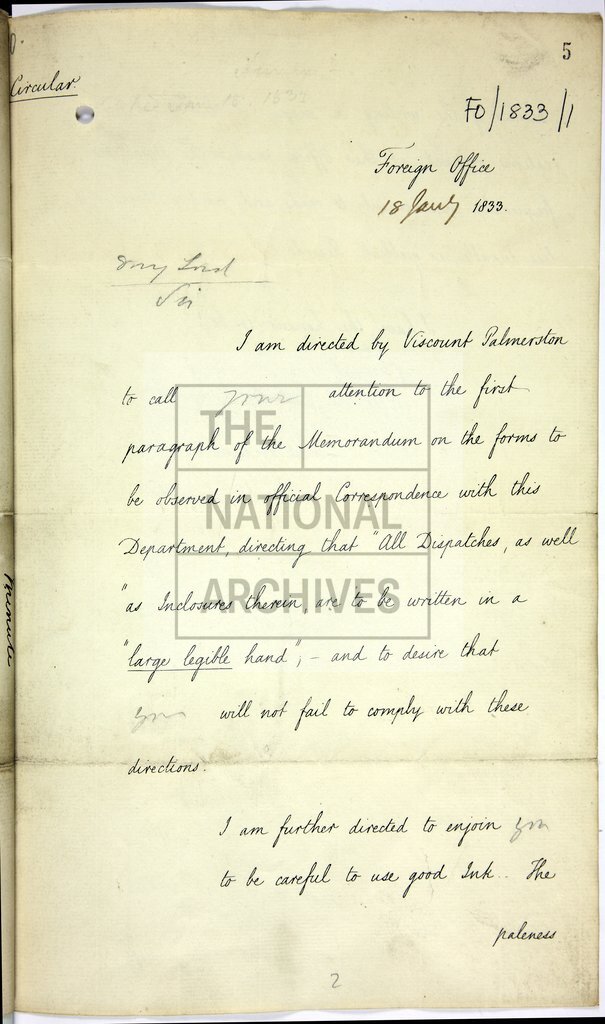 5
Circular.
FO/1833/1
Foreign Office
18 Jany 1833.
My Lord
Sir
I am directed by Viscount Palmerston
to call your attention to the first
paragraph of the Memorandum on the forms to
be observed in official Correspondence with this
Department, directing that "All Dispatches, as well
"as Inclosures therein, are to be written in a
"large legible hand"; – and to desire that
you will not fail to comply with these
directions.
I am further directed to enjoin you
to be careful to use good Ink. The
paleness
2
Minute
THE
NATIONAL
ARCHIVES